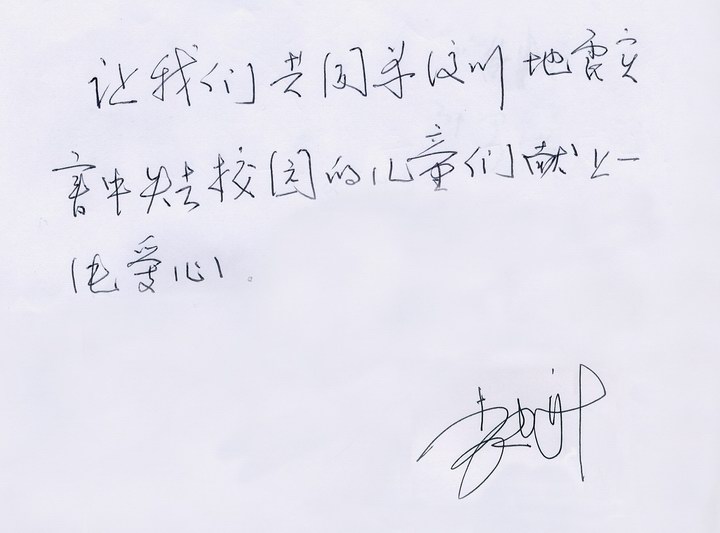 让我们共同为汶川地震灾
害中失去校园的儿童们献上一
份爱心.